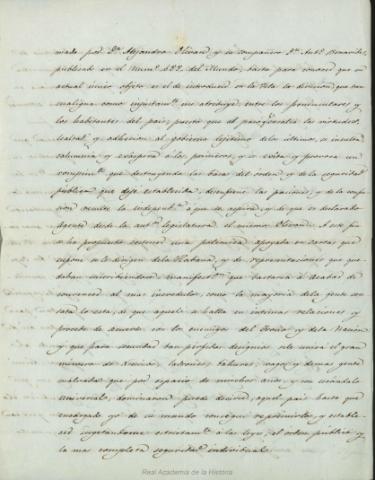 mado por Dn. Alejandro Olivan y su compañero Dn. Antº. Benavides,
publicado en el Numº. 622 del Mundo, basta para conocer que su
actual único objeto es el de introducir en la Isla la division, que tan
maligna como injustamte. se atribuye entre los peninsulares y
los habitantes del pais; puesto que al paso que los
lealtad y adhesion al gobierno legitimo de los ultimos, se insulta
calumnia y exaspera a los primeros, y se excita y provoca un
rompimto. que destruyendo las bases del orden y de la seguridad
publica que dejé establecida, desenfrene las pasiones, y de la confu-
sion resulte la independa. a que se aspira, y de que se declaraba
Agente desde la antr. legislatura el mismo Olivan. A este fin
se ha propuesto sostener una polemica apoyada en cartas que
supone se le dirigen de la Habana, y de representaciones que que-
daban suscribiendose, manifestn. que bastaria á acabar de
convencer al mas incredulo, como la mayoria de la gente sen-
sata lo está, de que aquel se halla en intimas relaciones y
procede de acuerdo con los enemigos del Trono y de la Nacion
y que para secundar tan perfidos designios se le unirá el gran
número de ladrones, tahures, vagos y demas gente
malvada que por espacio de muchos años, y con escándalo
universal, dominaron puede decirse, aquel pais hasta que
encargado yo de su mando consegui reprimirlos, y estable-
cer sujetandome estrictamte. a las leyes, el orden publico y
la mas completa seguridad individual.
Real Academia de la Historia